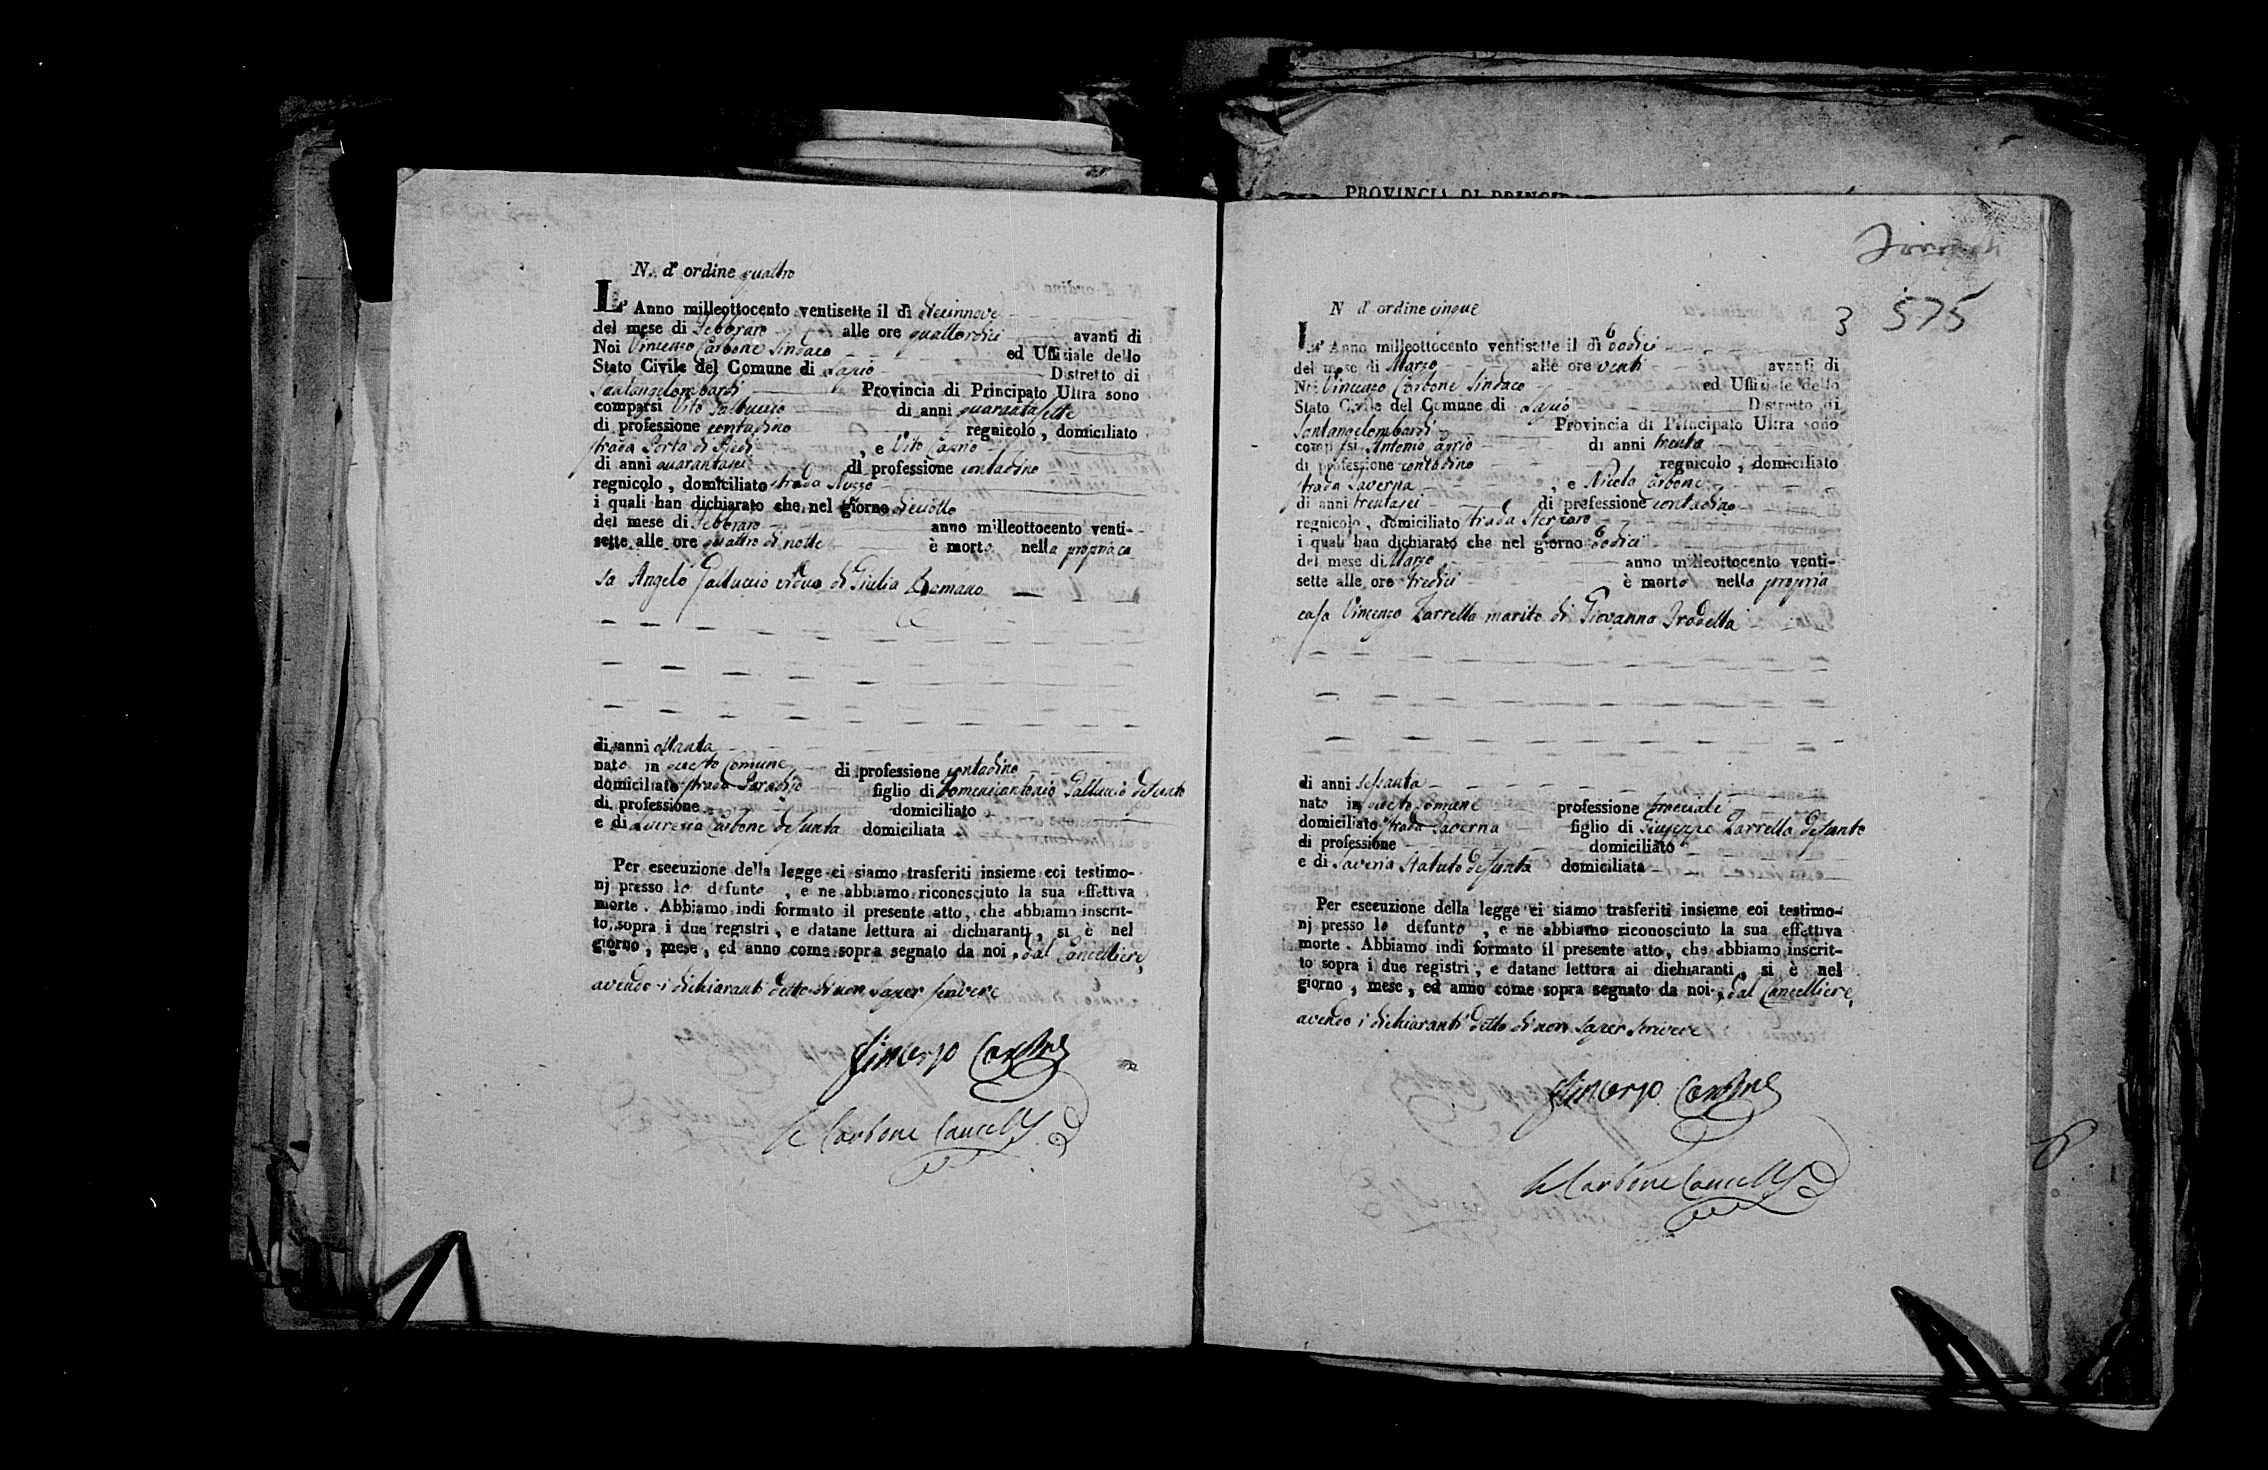 N. d' ordine quattro
L' Anno milleottocento ventisette il dì diecinnove
del mese di Febbraro alle ore quattordici avanti di
Noi Vincenzo Carbone Sindaco ed Uffiziale dello
Stato Civile del Comune di Lapio Distretto di
Santangelombardi Provincia di Principato Ultra sono
comparsi Vito Galluccio di anni quarantasette
di professione contadino regnicolo, domiciliato
strada Porta di , e Vito Caprio
di anni quarantasei di professione contadino
regnicolo, domiciliato strada
i quali han dichiarato che nel giorno dieciotto
del mese di Febbraro anno milleottocento venti-
sette alle ore quattro di notte è morto nella propria ca
sa Angelo Galluccio vedovo di Giulia Romano
di anni ottanta
nato in questo Comune di professione contadino
domiciliato strada Paradiso figlio di Domenicantonio Galluccio defunto
di professione domiciliato
e di Lucrezia Carbone defunta domiciliata
Per esecuzione della legge ci siamo trasferiti insieme coi testimo-
nj presso lo defunto , e ne abbiamo riconosciuto la sua effettiva
morte. Abbiamo indi formato il presente atto, che abbiamo inscrit-
to sopra i due registri, e datane lettura ai dichiaranti, si è nel
giorno, mese, ed anno come sopra segnato da noi, dal Cancelliere,
avendo i dichiaranti detto di non saper scrivere
Vincenzo Carbone
Carbone Cancell
PROVINCIA DI
3 575
N d' ordine cinque
L' Anno milleottocento ventisette il dì dodici
del mese di Marzo alle ore venti avanti di
Noi Vincenzo Carbone Sindaco ed Uffiziale dello
Stato Civile del Comune di Lapio Distretto di
Santangelombardi Provincia di Principato Ultra sono
comparsi Antonio di anni trenta
di professione contadino regnicolo, domiciliato
strada Taverna , e Nicola Carbone
di anni trentasei di professione contadino
regnicolo, domiciliato strada
i quali han dichiarato che nel giorno dodici
del mese di Marzo anno milleottocento venti-
sette alle ore tredici è morto nella propria
casa Vincenzo Zarrella marito di Giovanna
di anni sessanta
nato in questo Comune professione
domiciliato strada Taverna figlio di Giuseppe Zarrella defunto
di professione domiciliato
e di Saveria Statuto defunta domiciliata
Per esecuzione della legge ci siamo trasferiti insieme coi testimo-
nj presso lo defunto , e ne abbiamo riconosciuto la sua effettiva
morte. Abbiamo indi formato il presente atto, che abbiamo inscrit-
to sopra i due registri, e datane lettura ai dichiaranti, si è nel
giorno, mese, ed anno come sopra segnato da noi, dal Cancelliere,
avendo i dichiaranti detto di non saper scrivere
Vincenzo Carbone
Carbone Cancell